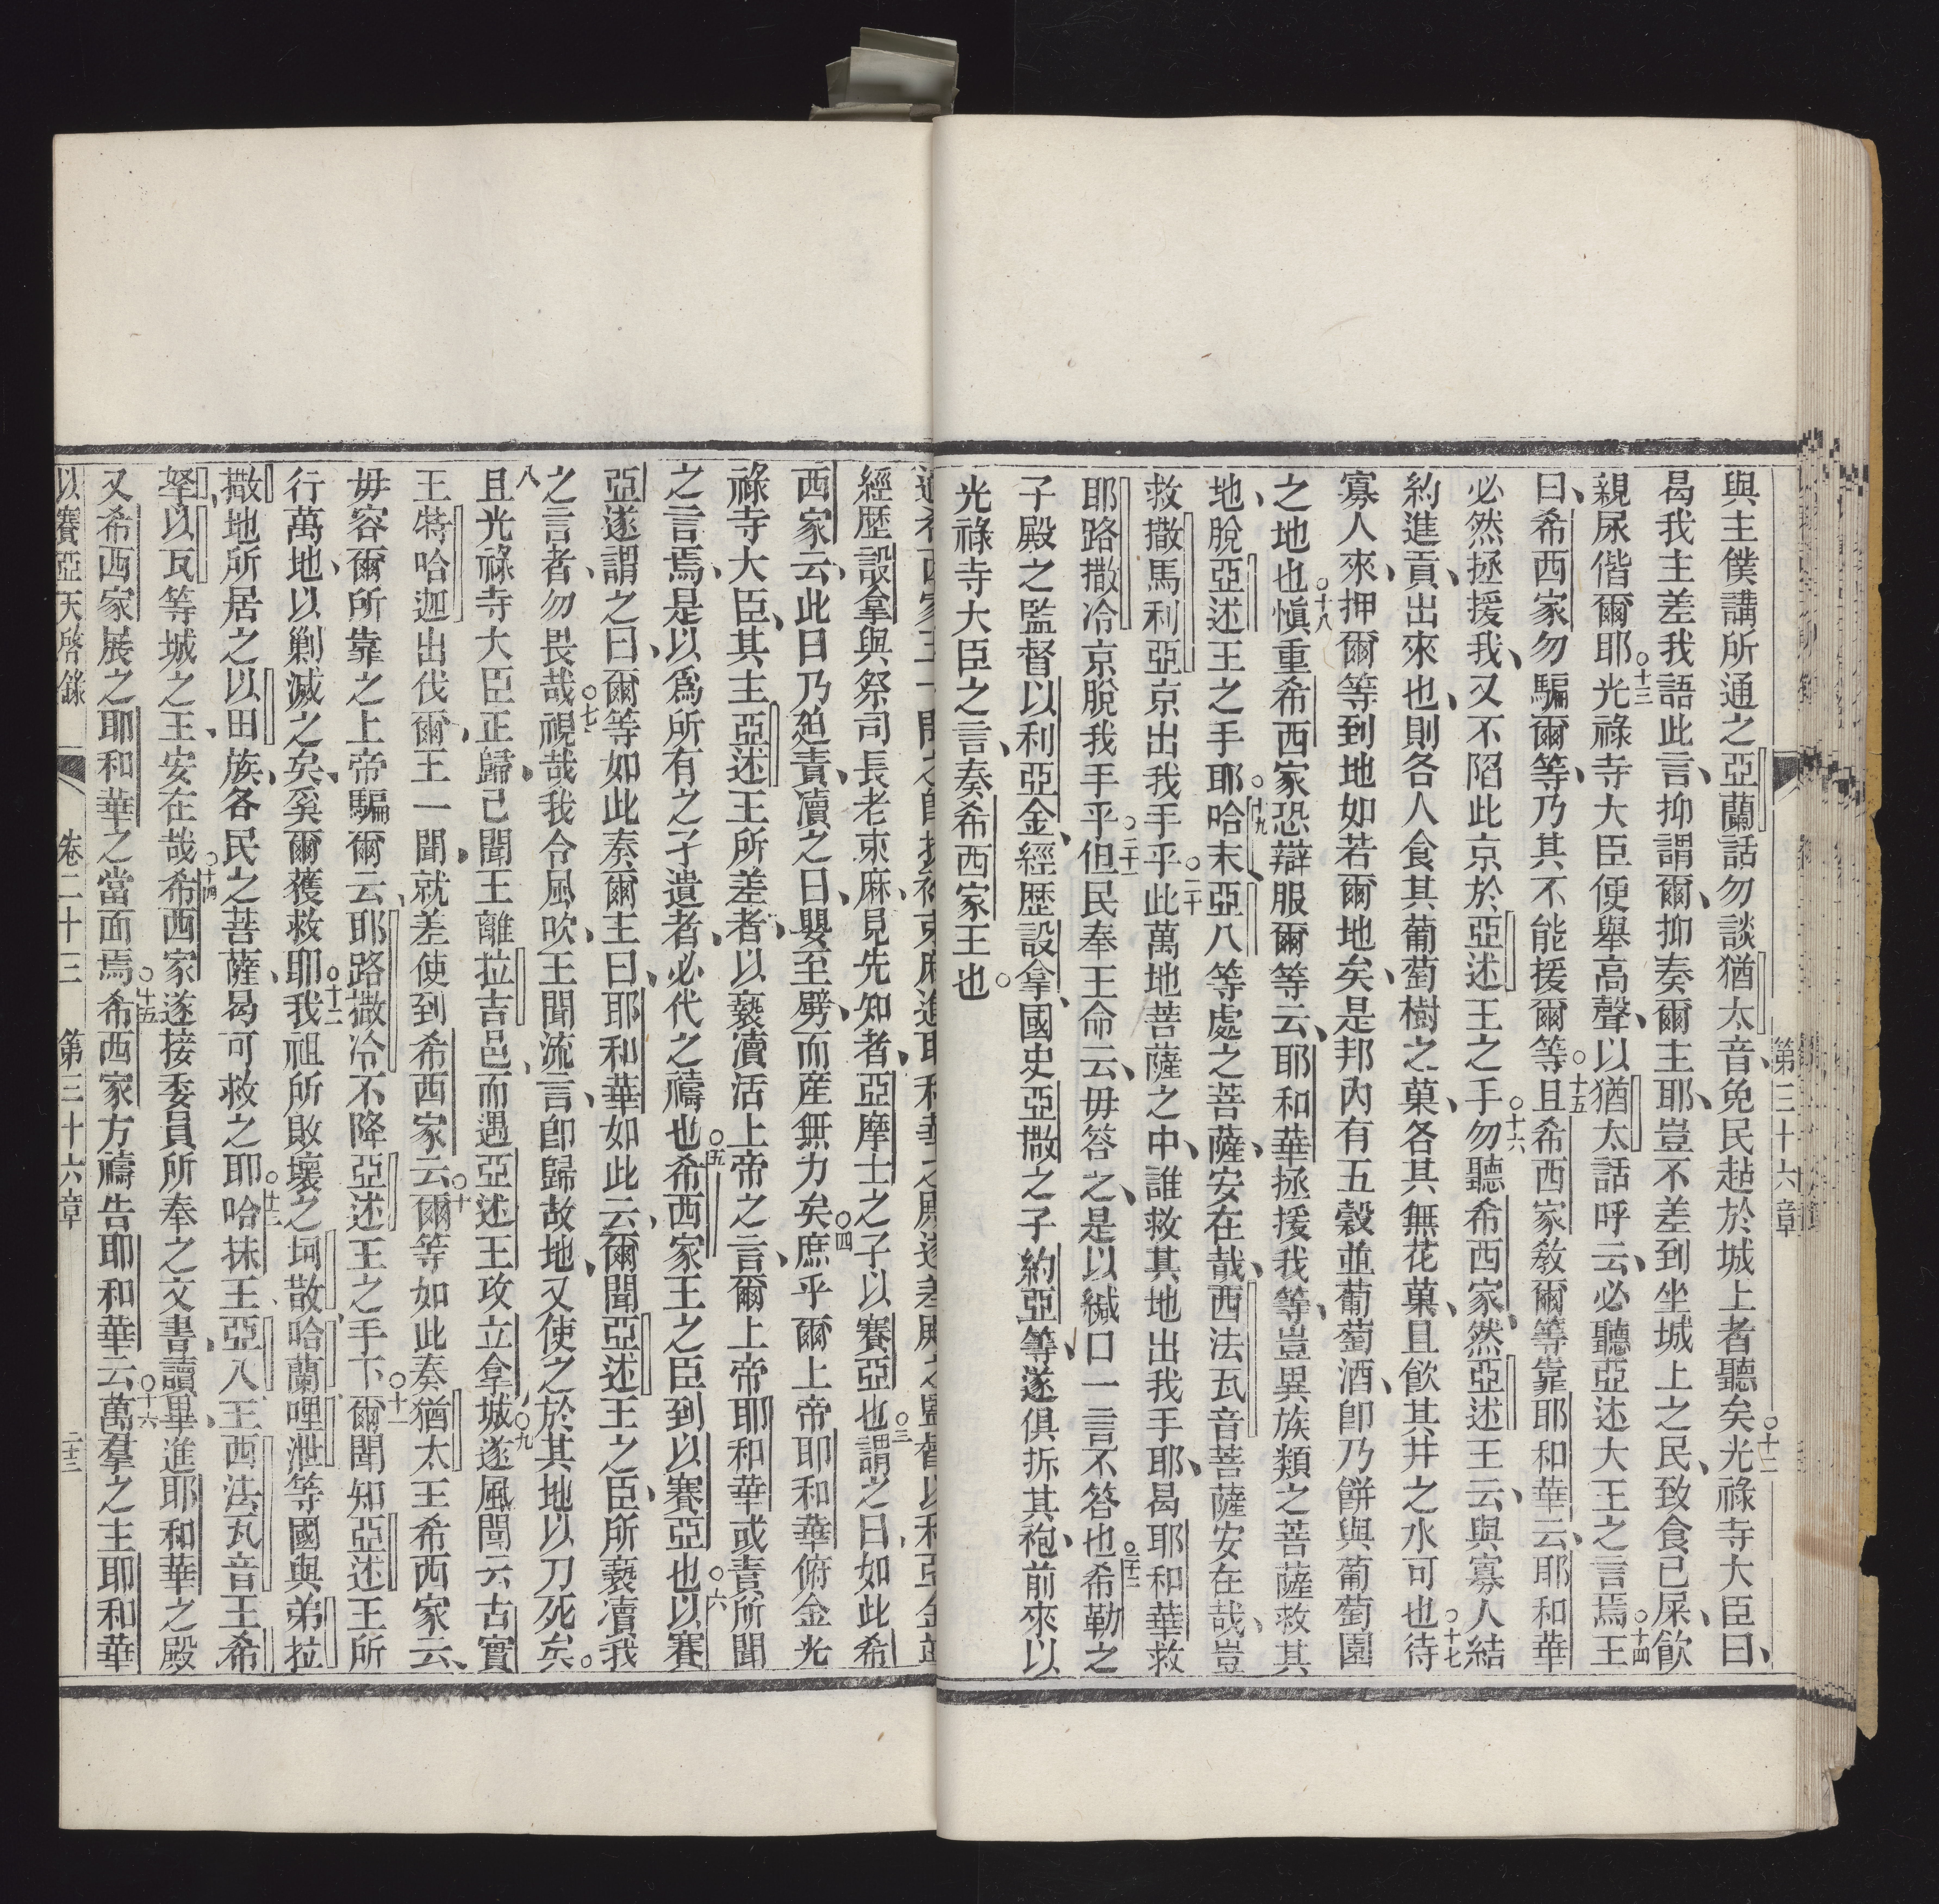 第三十六章
與主僕講所通之亞蘭話勿談猶太音免民趈於城上者聽矣○十二光祿寺大臣曰、
曷我主差我語此言、抑謂爾、抑奏爾主耶、豈不差到坐城上之民、致食己屎、飲
親尿偕爾耶○十三光祿寺大臣便舉高聲、以猶太話呼云、必聽亞述大王之言焉○十四王
曰、希西家勿騙爾等、乃其不能援爾等○十五且希西家教爾等靠耶和華云、耶和華
必然拯援我、又不陷此京於亞述王之手○十六勿聽希西家、然亞述王云、與寡人結
約進貢、出來也、則各人食其葡萄樹之菓、各其無花菓、且飲其井之水可也○十七待
寡人來、押爾等到地如若爾地矣、是邦內有五穀並葡萄酒、卽乃餅與葡萄園
之地也○十八慎重希西家恐辯服爾等云、耶和華拯援我等、豈異族類之菩薩救其
地、脫亞述王之手耶○十九哈末亞八等處之菩薩、安在哉、西法瓦音菩薩安在哉、豈
救撒馬利亞京出我手乎○二十此萬地菩薩之中、誰救其地出我手耶、曷耶和華救
耶路撒冷京脫我手乎○二十一但民奉王命云、毋答之、是以緘口一言不答也○二十二希勒之
子殿之監督以利亞金、經歷設拿、國史亞撒之子約亞等、遂俱拆其袍、前來以
光祿寺大臣之言、奏希西家王也○
經歷設拿與祭司長老束麻、見先知者、亞摩士之子以賽亞也○三謂之曰、如此希
西家云、此日乃廹責、瀆之日、嬰至劈、而產無力矣○四庶乎爾上帝耶和華俯念光
祿寺大臣、其主亞述王所差者、以褻瀆活上帝之言、爾上帝耶和華或責所聞
之言焉、是以為所有之孑遺者、必代之禱也○五希西家王之臣到以賽亞也○六以賽
亞遂謂之曰、爾等如此奏爾主曰、耶和華如此云、爾聞亞述王之臣、所褻瀆我
之言者、勿畏哉○七視哉我令風吹、王聞流言、卽歸故地、又使之於其地以刀死矣○
八且光祿寺大臣正歸、己聞王離拉吉邑、而遇亞述王攻立拿城○九遂風聞云古實
王特哈迦出伐爾王一聞、就差使到希西家云○十爾等如此奏猶太王希西家云、
毋容爾所靠之上帝騙爾云、耶路撒冷不降亞述王之手下○十一爾聞知亞述王所
行萬地、以剿滅之矣、奚爾獲救耶○十二我祖所敗壞之坷散、哈蘭、哩泄等國與弟拉
撒地所居之以田族、各民之菩薩、曷可救之耶○十三哈抹王、亞八王、西法瓦音王、希
拏以瓦等城之王、安在哉○十四希西家遂接委員所奉之文書、讀畢、進耶和華之殿
又希西家展之耶和華之當面焉○十五希西家方禱告耶和華云○十六萬羣之主耶和華
以賽亞天啓錄　卷二十三　第三十六章